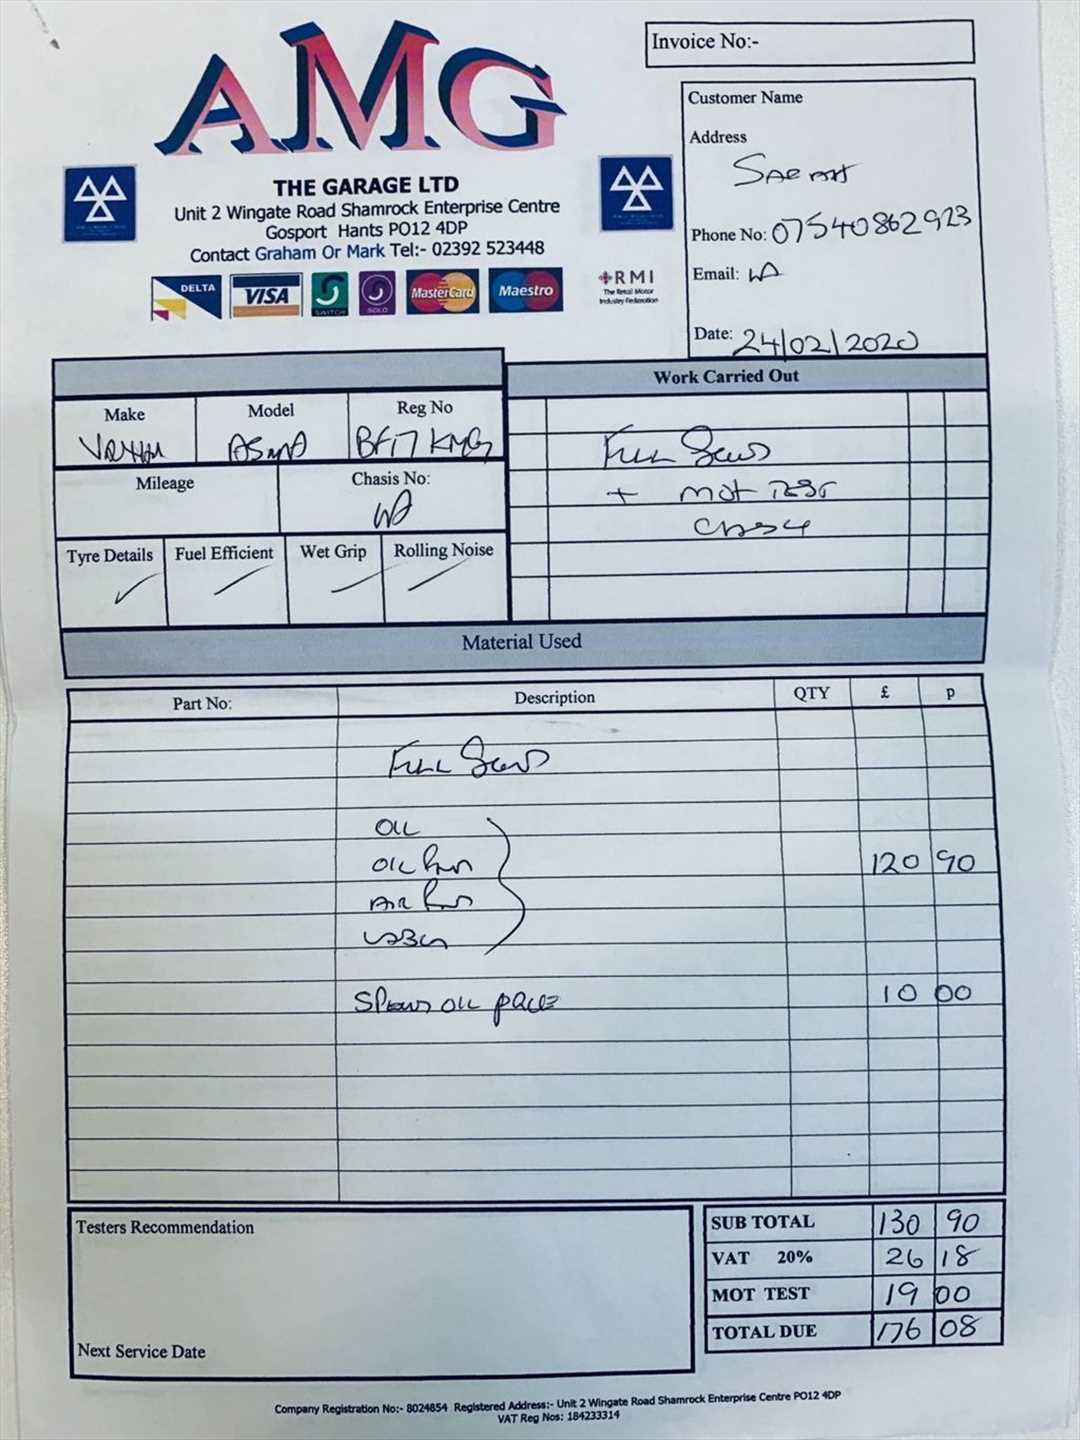 AMG
Invoice No:-
Customer Name
Address
SARAH
Phone No: 07540862923
Email:
Date: 24/02/2020
THE GARAGE LTD
Unit 2 Wingate Road Shamrock Enterprise Centre
Gosport Hants PO12 4DP
Contact Graham Or Mark Tel:- 02392 523448
DELTA
VISA
SWITCH
SOLO
MasterCard
Maestro
RMI
The Retail Motor
Industry Federation
Work Carried Out
Make
Model
Reg No
BF17 KMG
Mileage
Chasis No:
Tyre Details
Fuel Efficient
Wet Grip
Rolling Noise
FULL
+ MOT TEST
CLASS 4
Material Used
Part No:
Description
QTY
£
p
FULL
OIL
OIL
120 90
AIR
OIL
10 00
Testers Recommendation
Next Service Date
SUB TOTAL 130 90
VAT 20% 26 18
MOT TEST 19 00
TOTAL DUE 176 08
Company Registration No:- 8024854 Registered Address:- Unit 2 Wingate Road Shamrock Enterprise Centre PO12 4DP
VAT Reg Nos: 184233314